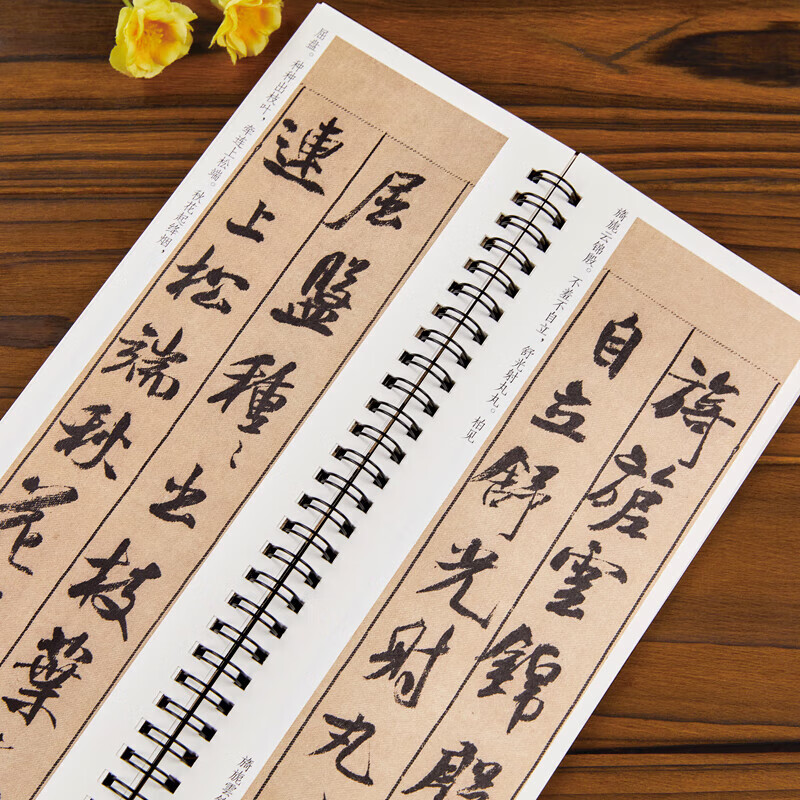 屈盘。种种出枝叶，牵连上松端。秋花起绛烟，
屈盤種〻出枝葉
連上松端秋花
旖旎云锦殷。不羞不自立，舒光射丸丸。柏见
旖旎雲錦殷
自立舒光射丸
旖旎雲